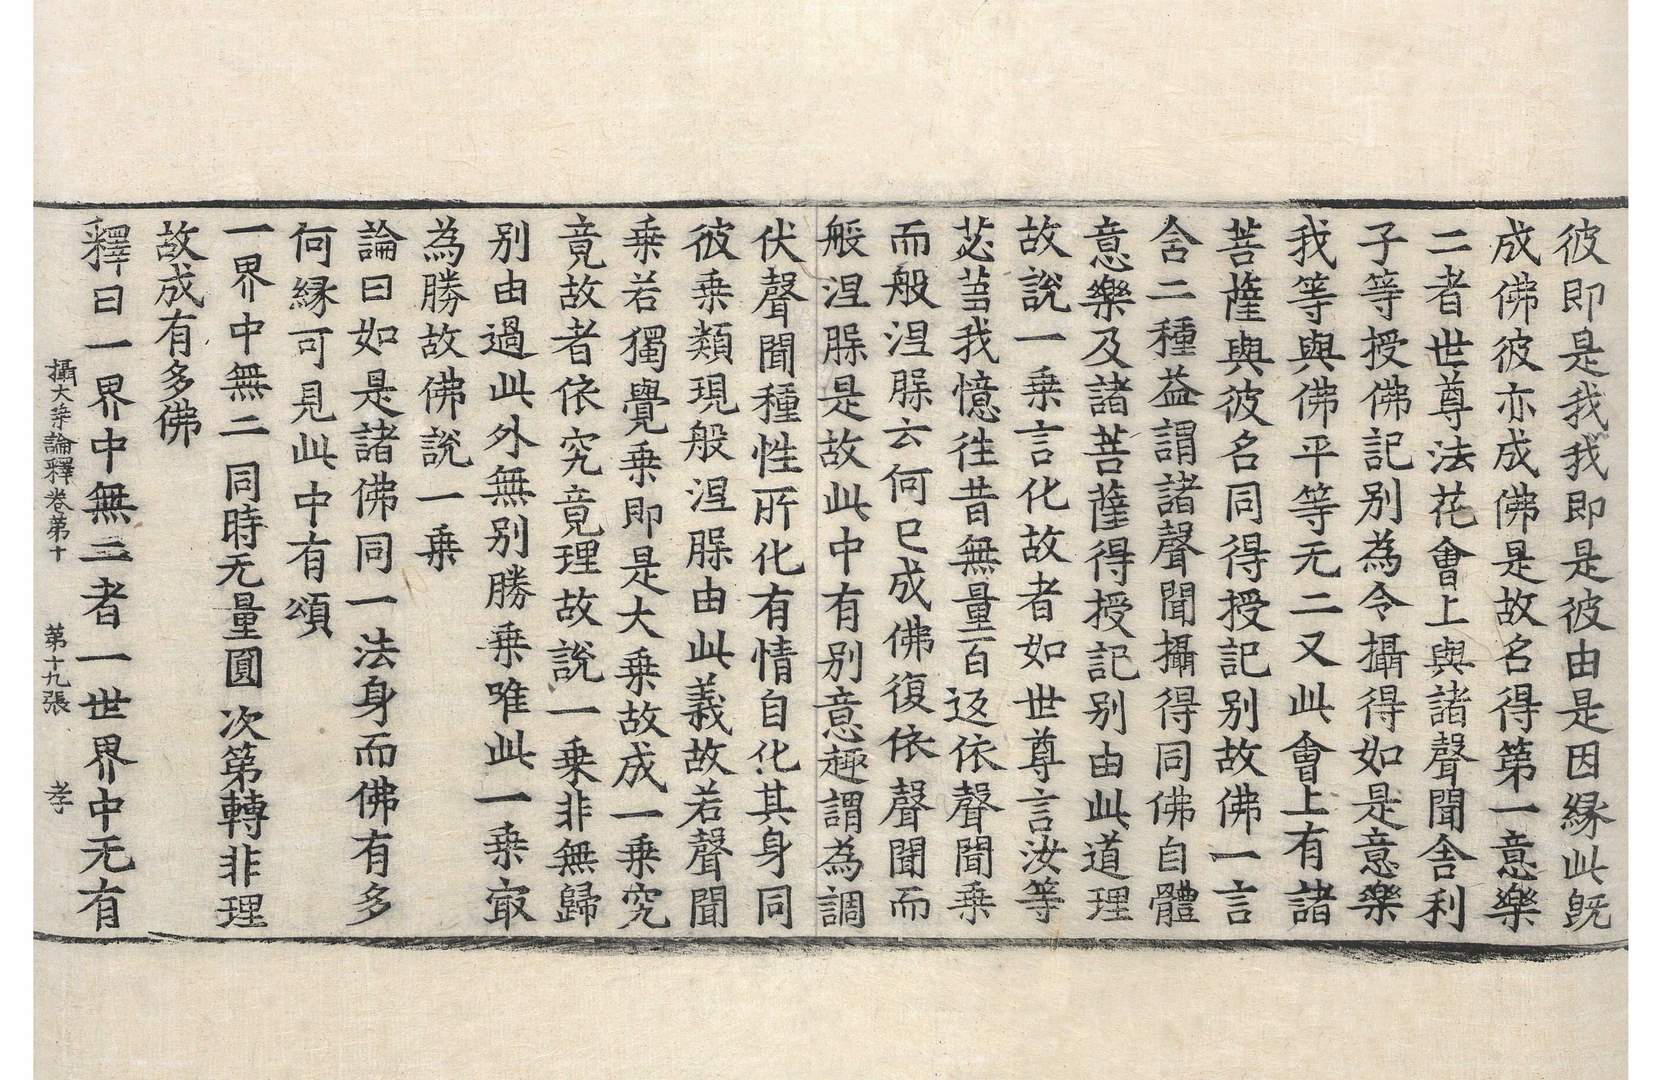 彼即是我我即是彼由是因縁此旣
成佛彼亦成佛是故名得第一意樂
二者世尊法花會上與諸聲聞舎利
子等授佛記别為令攝得如是意樂
我等與佛平等无二又此會上有諸
菩薩與彼名同得授記别故佛一言
含二種益謂諸聲聞攝得同佛自體
意樂及諸菩薩得授記别由此道理
故說一乗言化故者如世尊言汝等
苾蒭我憶往昔無量百返依聲聞乗
而般涅槃云何已成佛復依聲聞而
般涅槃是故此中有别意趣謂為調
伏聲聞種性所化有情自化其身同
彼乗類現般涅槃由此義故若聲聞
乗若獨覺乗即是大乗故成一乗究
竟故者依究竟理故說一乗非無歸
别由過此外無别勝乗唯此一乗㝡
為勝故佛說一乗
論曰如是諸佛同一法身而佛有多
何縁可見此中有頌
一界中無二　同時无量圓　次第轉非理
故成有多佛
釋曰一界中無二者一世界中无有
攝大乗論釋卷第十　第十九張　孝